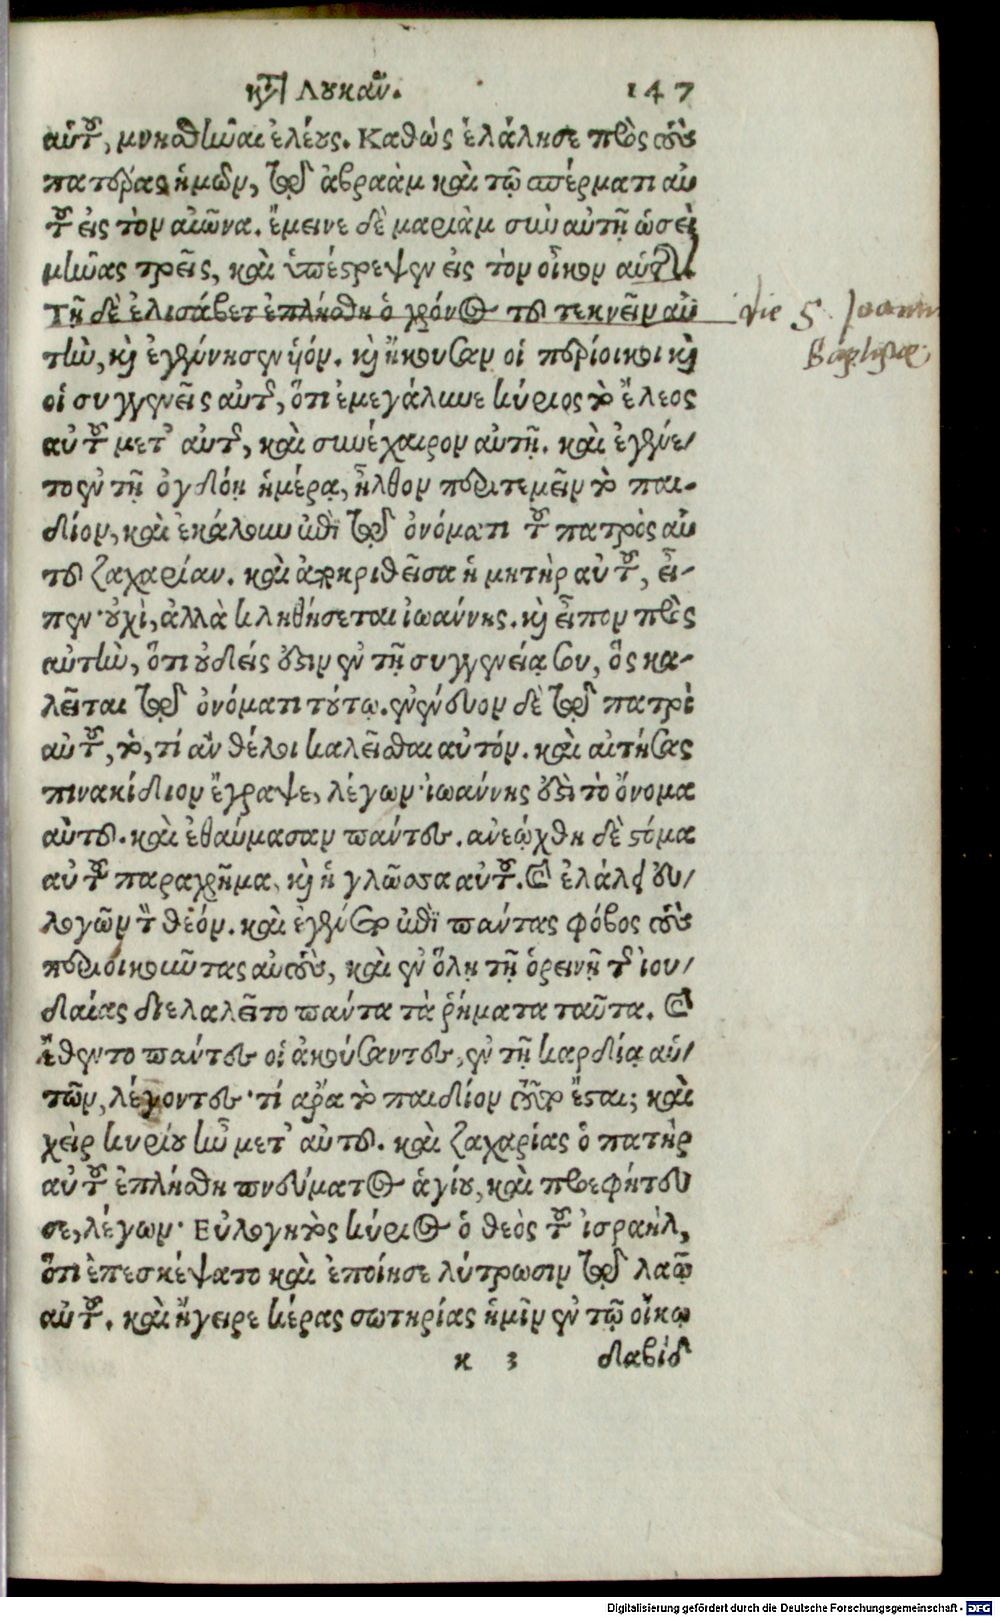 κτ̀ Λουκᾶν. 147
αὐτοῦ, μνησθῆναι ἐλέους. Καθὼς ἐλάλησε πρὸς τοὺς
πατέρας ἡμῶν, τῷ ἀβραὰμ καὶ τῷ σπέρματι αὐ
τοῦ εἰς τὸν αἰῶνα. ἔμεινε δὲ μαριὰμ σὺν αὐτῇ ὡσεὶ
μῆνας τρεῖς, καὶ ὑπέστρεψεν εἰς τὸν οἶκον αὐτῆς.
Τῇ δὲ ἐλισάβετ ἐπλήσθη ὁ χρόνος τοῦ τεκεῖν αὐ
τὴν, καὶ ἐγέννησεν υἱόν. καὶ ἤκουσαν οἱ περίοικοι καὶ
οἱ συγγενεῖς αὐτῆς, ὅτι ἐμεγάλυνε κύριος τὸ ἔλεος
αὐτοῦ μετ' αὐτῆς, καὶ συνέχαιρον αὐτῇ. καὶ ἐγένε/
το ἐν τῇ ὀγδόῃ ἡμέρᾳ, ἦλθον περιτεμεῖν τὸ παι-
δίον, καὶ ἐκάλουν αὐτὸ ἐπὶ τῷ ὀνόματι τοῦ πατρὸς αὐ
τοῦ ζαχαρίαν. καὶ ἀποκριθεῖσα ἡ μητὴρ αὐτοῦ, εἶ-
πεν· οὐχὶ, ἀλλὰ κληθήσεται ἰωάννης. καὶ εἶπον πρὸς
αὐτὴν, ὅτι οὐδείς ἐστιν ἐν τῇ συγγενείᾳ σου, ὃς κα-
λεῖται τῷ ὀνόματι τούτῳ. ἐνένευον δὲ τῷ πατρὶ
αὐτοῦ, τὸ, τί ἂν θέλοι καλεῖσθαι αὐτόν. καὶ αἰτήσας
πινακίδιον ἔγραψε, λέγων· ἰωάννης ἐστὶ τὸ ὄνομα
αὐτοῦ. καὶ ἐθαύμασαν πάντες. ἀνεῴχθη δὲ στόμα
αὐτοῦ παραχρῆμα, καὶ ἡ γλῶσσα αὐτοῦ. καὶ ἐλάλει εὐ/
λογῶν τὸν θεόν. καὶ ἐγένετο ἐπὶ πάντας φόβος τοὺς
περιοικοῦντας αὐτοὺς, καὶ ἐν ὅλῃ τῇ ὀρεινῇ τῆς ἰου/
δαίας διελαλεῖτο πάντα τὰ ῥήματα ταῦτα. καὶ
ἔθεντο πάντες οἱ ἀκούσαντες, ἐν τῇ καρδίᾳ αὐ/
τῶν, λέγοντες· τί ἄρα τὸ παιδίον τοῦτο ἔσται; καὶ
χεὶρ κυρίου ἦν μετ' αὐτοῦ. καὶ ζαχαρίας ὁ πατὴρ
αὐτοῦ ἐπλήσθη πνεύματος ἁγίου, καὶ προεφήτευ
σε, λέγων· Εὐλογητὸς κύριος ὁ θεὸς τοῦ ἰσραὴλ,
ὅτι ἐπεσκέψατο καὶ ἐποίησε λύτρωσιν τῷ λαῷ
αὐτοῦ. καὶ ἤγειρε κέρας σωτηρίας ἡμῖν ἐν τῷ οἴκῳ
κ 3 δαβίδ
Die S. Joannis
Baptistae
Digitalisierung gefördert durch die Deutsche Forschungsgemeinschaft - DFG